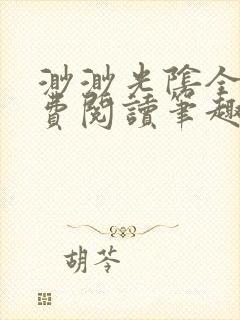 渺渺光陰全
費閱讀筆趣
胡苓